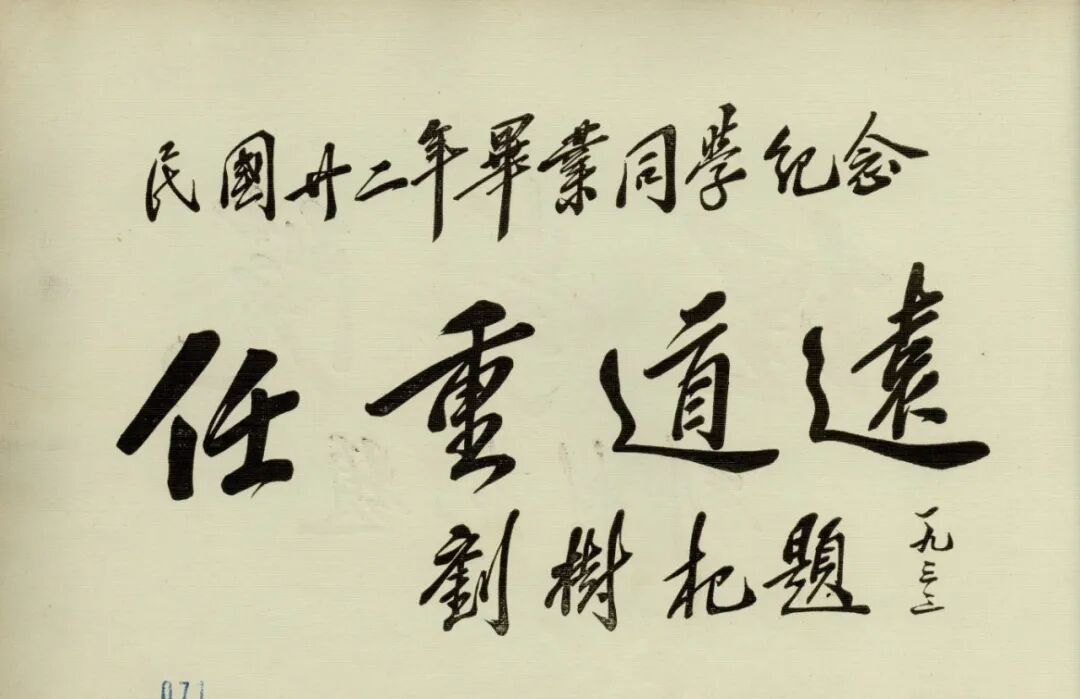 民國廿二年畢業同學紀念
任重道遠
劉樹杞題
一九三三
071